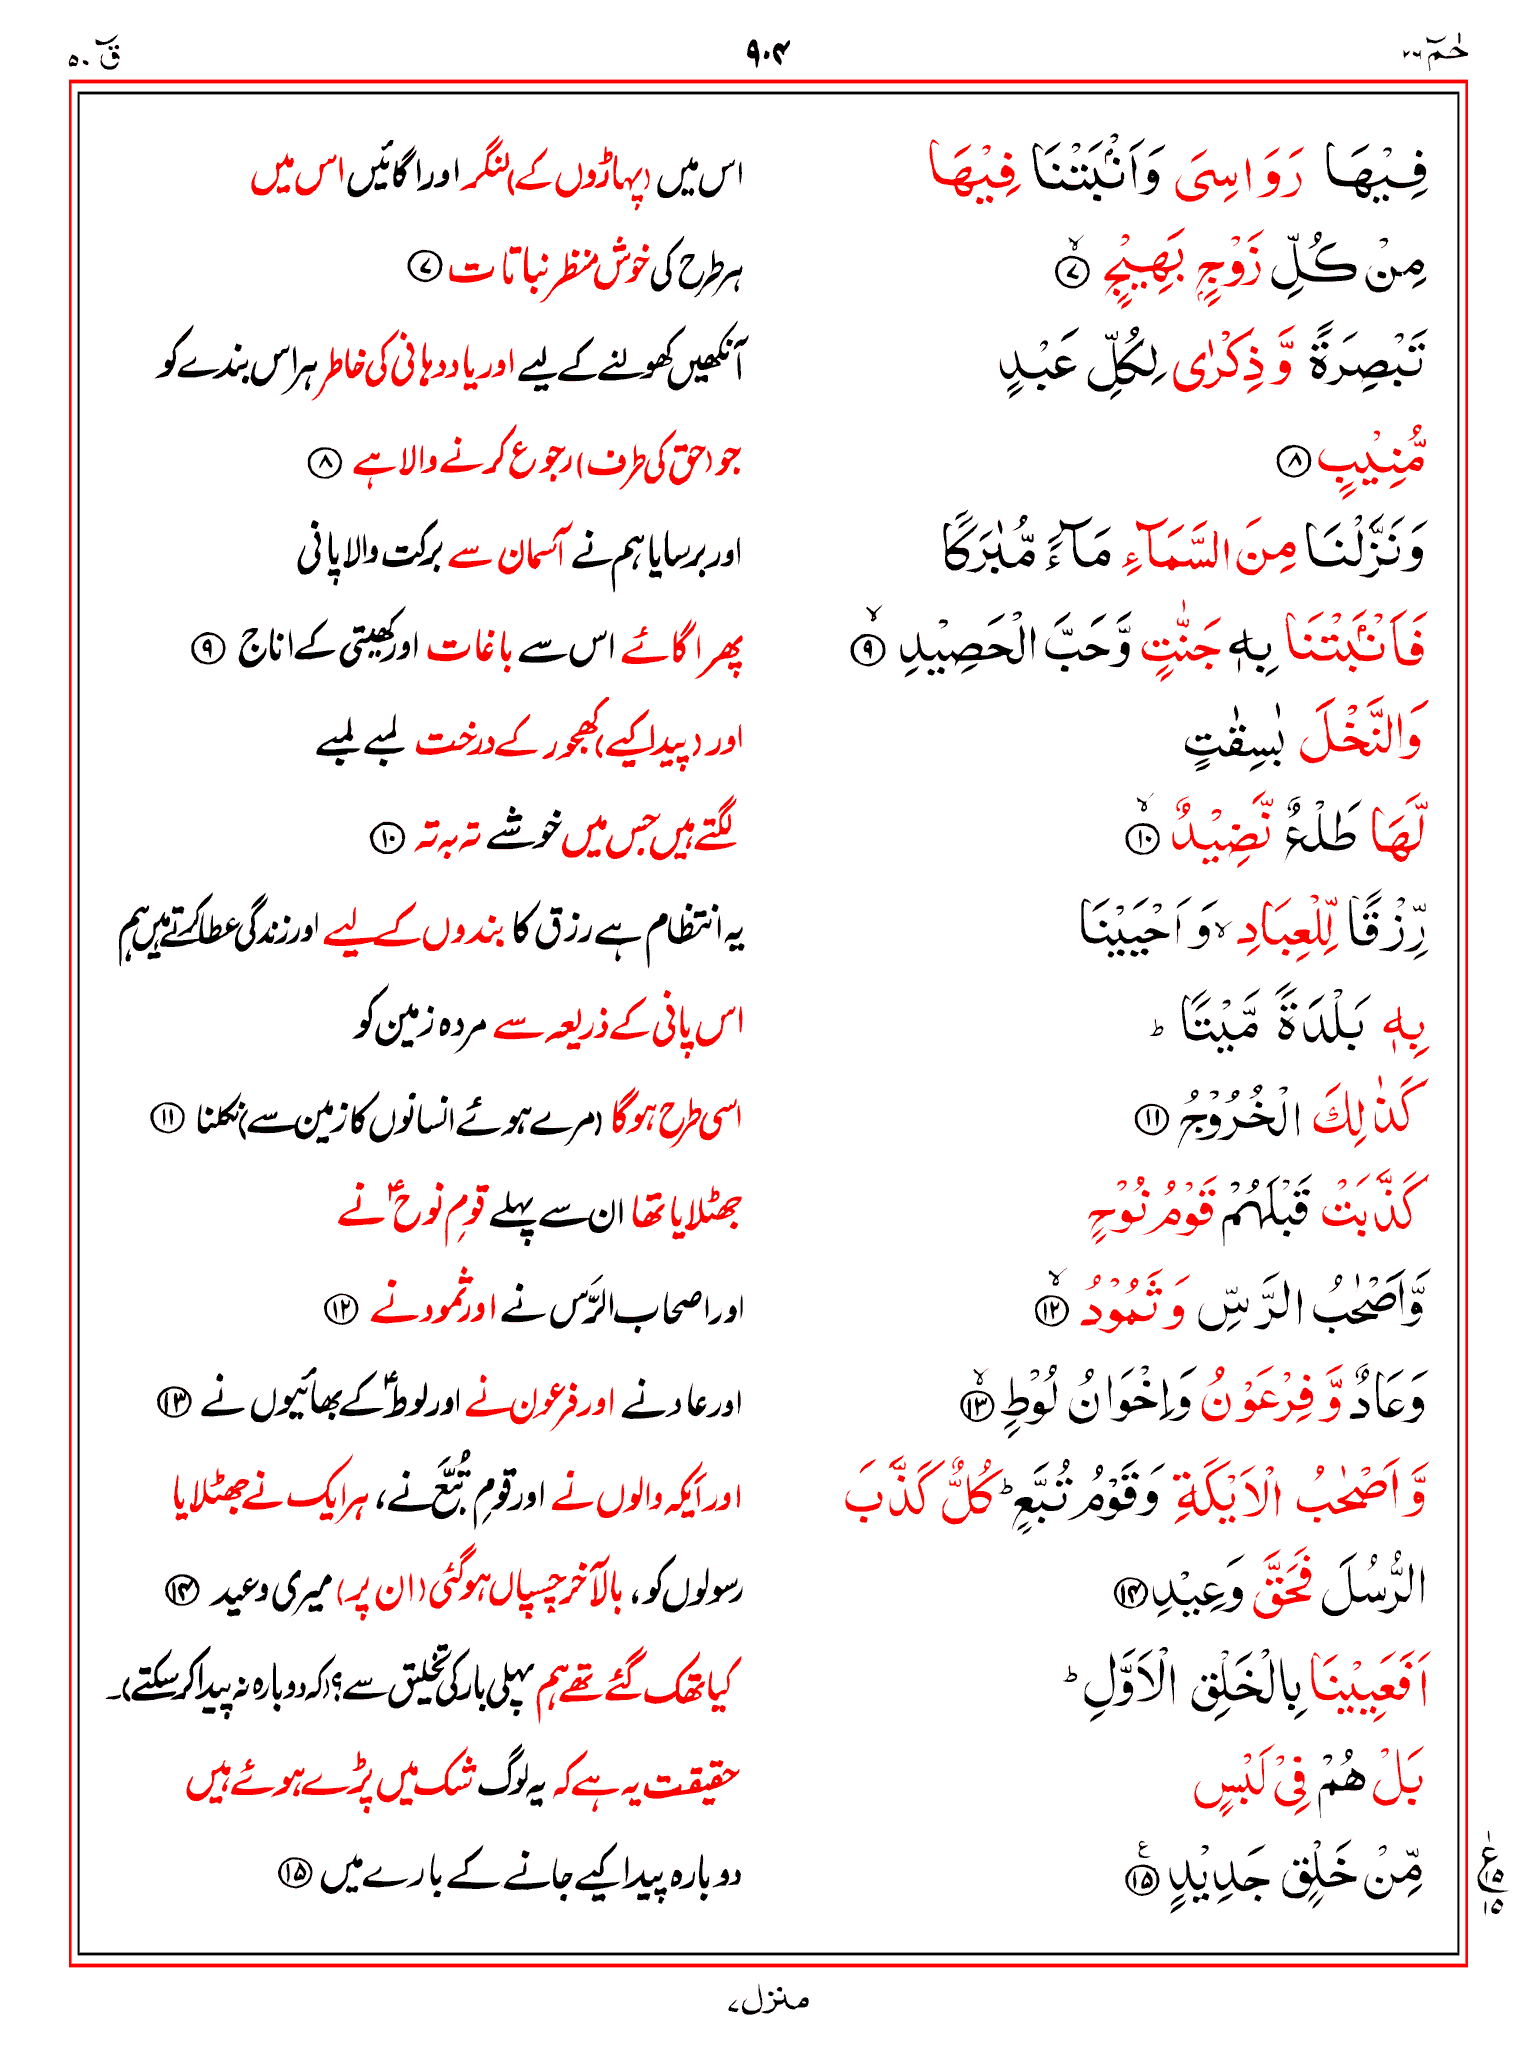 حٰمٓ ۲۶ ۹۰۴ قٓ ۵۰
فِيْهَا رَوَاسِىَ وَاَنْۢبَتْنَا فِيْهَا اس میں (پہاڑوں کے) لنگر اور اگائیں اس میں
مِنْ كُلِّ زَوْجٍۭ بَهِيْجٍ ۙ⑦ ہر طرح کی خوش منظر نباتات ⑦
تَبْصِرَةً وَّ ذِكْرٰى لِكُلِّ عَبْدٍ آنکھیں کھولنے کے لیے اور یاددہانی کی خاطر ہر اس بندے کو
مُّنِيْبٍ ⑧ جو (حق کی طرف) رجوع کرنے والا ہے ⑧
وَنَزَّلْنَا مِنَ السَّمَآءِ مَآءً مُّبٰرَكًا اور برسایا ہم نے آسمان سے برکت والا پانی
فَاَنْۢبَتْنَا بِهٖ جَنّٰتٍ وَّحَبَّ الْحَصِيْدِ ۙ⑨ پھر اگائے اس سے باغات اور کھیتی کے اناج ⑨
وَالنَّخْلَ بٰسِقٰتٍ اور (پیدا کیے) کھجور کے درخت لمبے لمبے
لَّهَا طَلْعٌ نَّضِيْدٌ ۙ⑩ لگتے ہیں جس میں خوشے تہ بہ تہ ⑩
رِّزْقًا لِّلْعِبَادِ ۙ وَ اَحْيَيْنَا یہ انتظام ہے رزق کا بندوں کے لیے اور زندگی عطا کرتے ہیں ہم
بِهٖ بَلْدَةً مَّيْتًا ؕ اس پانی کے ذریعہ سے مردہ زمین کو
كَذٰلِكَ الْخُرُوْجُ ⑪ اسی طرح ہوگا (مرے ہوئے انسانوں کا زمین سے) نکلنا ⑪
كَذَّبَتْ قَبْلَهُمْ قَوْمُ نُوْحٍ جھٹلایا تھا ان سے پہلے قومِ نوحؑ نے
وَّاَصْحٰبُ الرَّسِّ وَ ثَمُوْدُ ۙ⑫ اور اصحاب الرَّس نے اور ثمود نے ⑫
وَعَادٌ وَّ فِرْعَوْنُ وَاِخْوَانُ لُوْطٍ ۙ⑬ اور عاد نے اور فرعون نے اور لوطؑ کے بھائیوں نے ⑬
وَّ اَصْحٰبُ الْاَيْكَةِ وَ قَوْمُ تُبَّعٍ ؕ كُلٌّ كَذَّبَ اور اَیکہ والوں نے اور قومِ تُبَّع نے، ہر ایک نے جھٹلایا
الرُّسُلَ فَحَقَّ وَعِيْدِ ⑭ رسولوں کو، بالآخر چسپاں ہوگئی (ان پر) میری وعید ⑭
اَفَعَيِيْنَا بِالْخَلْقِ الْاَوَّلِ ؕ کیا تھک گئے تھے ہم پہلی بار کی تخلیق سے؟ (کہ دوبارہ نہ پیدا کر سکتے)۔
بَلْ هُمْ فِىْ لَبْسٍ حقیقت یہ ہے کہ یہ لوگ شک میں پڑے ہوئے ہیں
مِّنْ خَلْقٍ جَدِيْدٍ ⑮ۧ دوبارہ پیدا کیے جانے کے بارے میں ⑮
ع ۱۵ ۱۵
منزل ۷